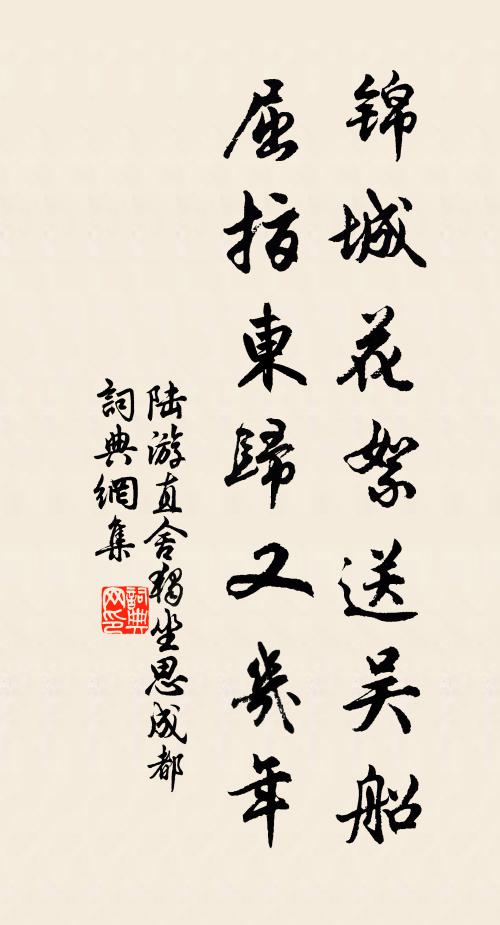 锦城花絮送吴船
屈指東歸又幾年
陆游直舍独坐思成都
詞典網集
詞典网印